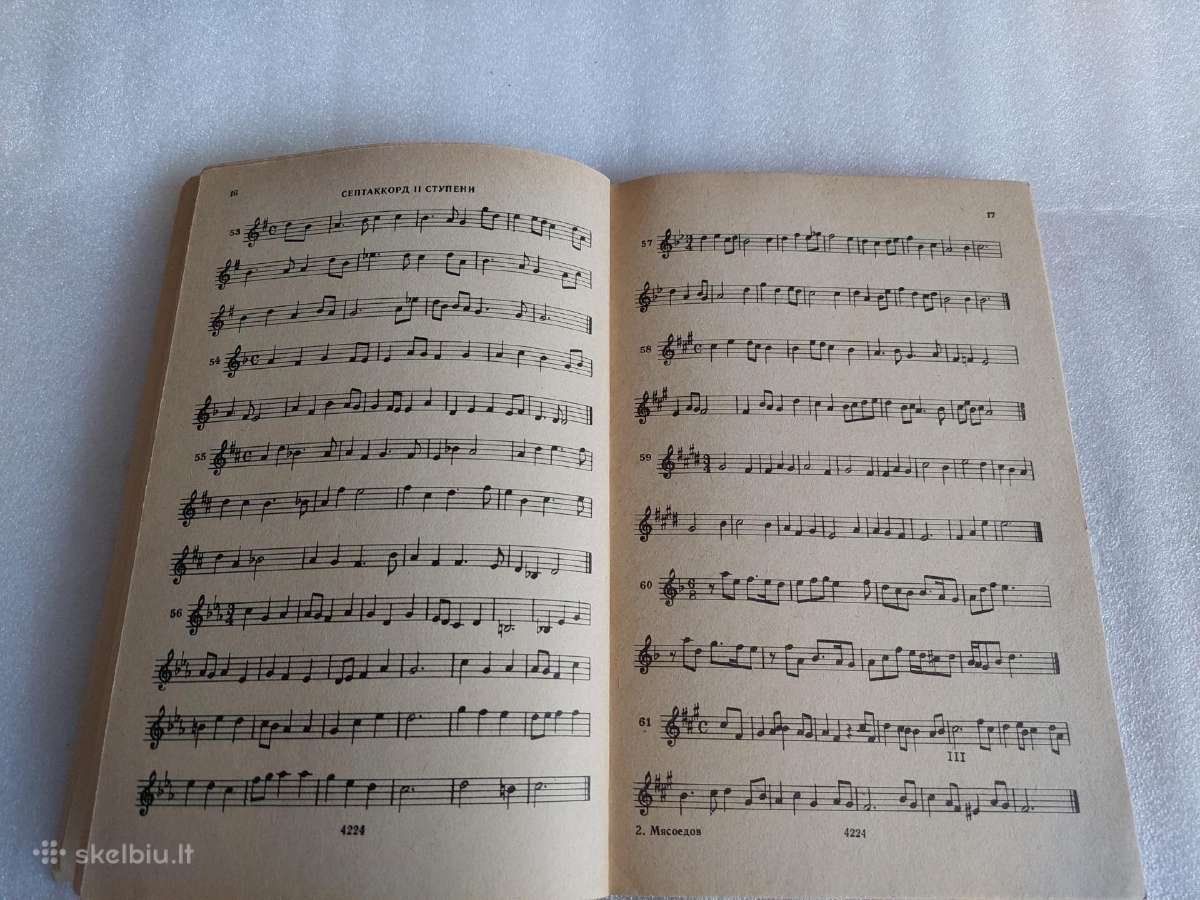 16
СЕПТАККОРД II СТУПЕНИ
53
54
55
56
4224
17
57
58
59
60
61
III
2. Мясоедов
4224
skelbiu.lt